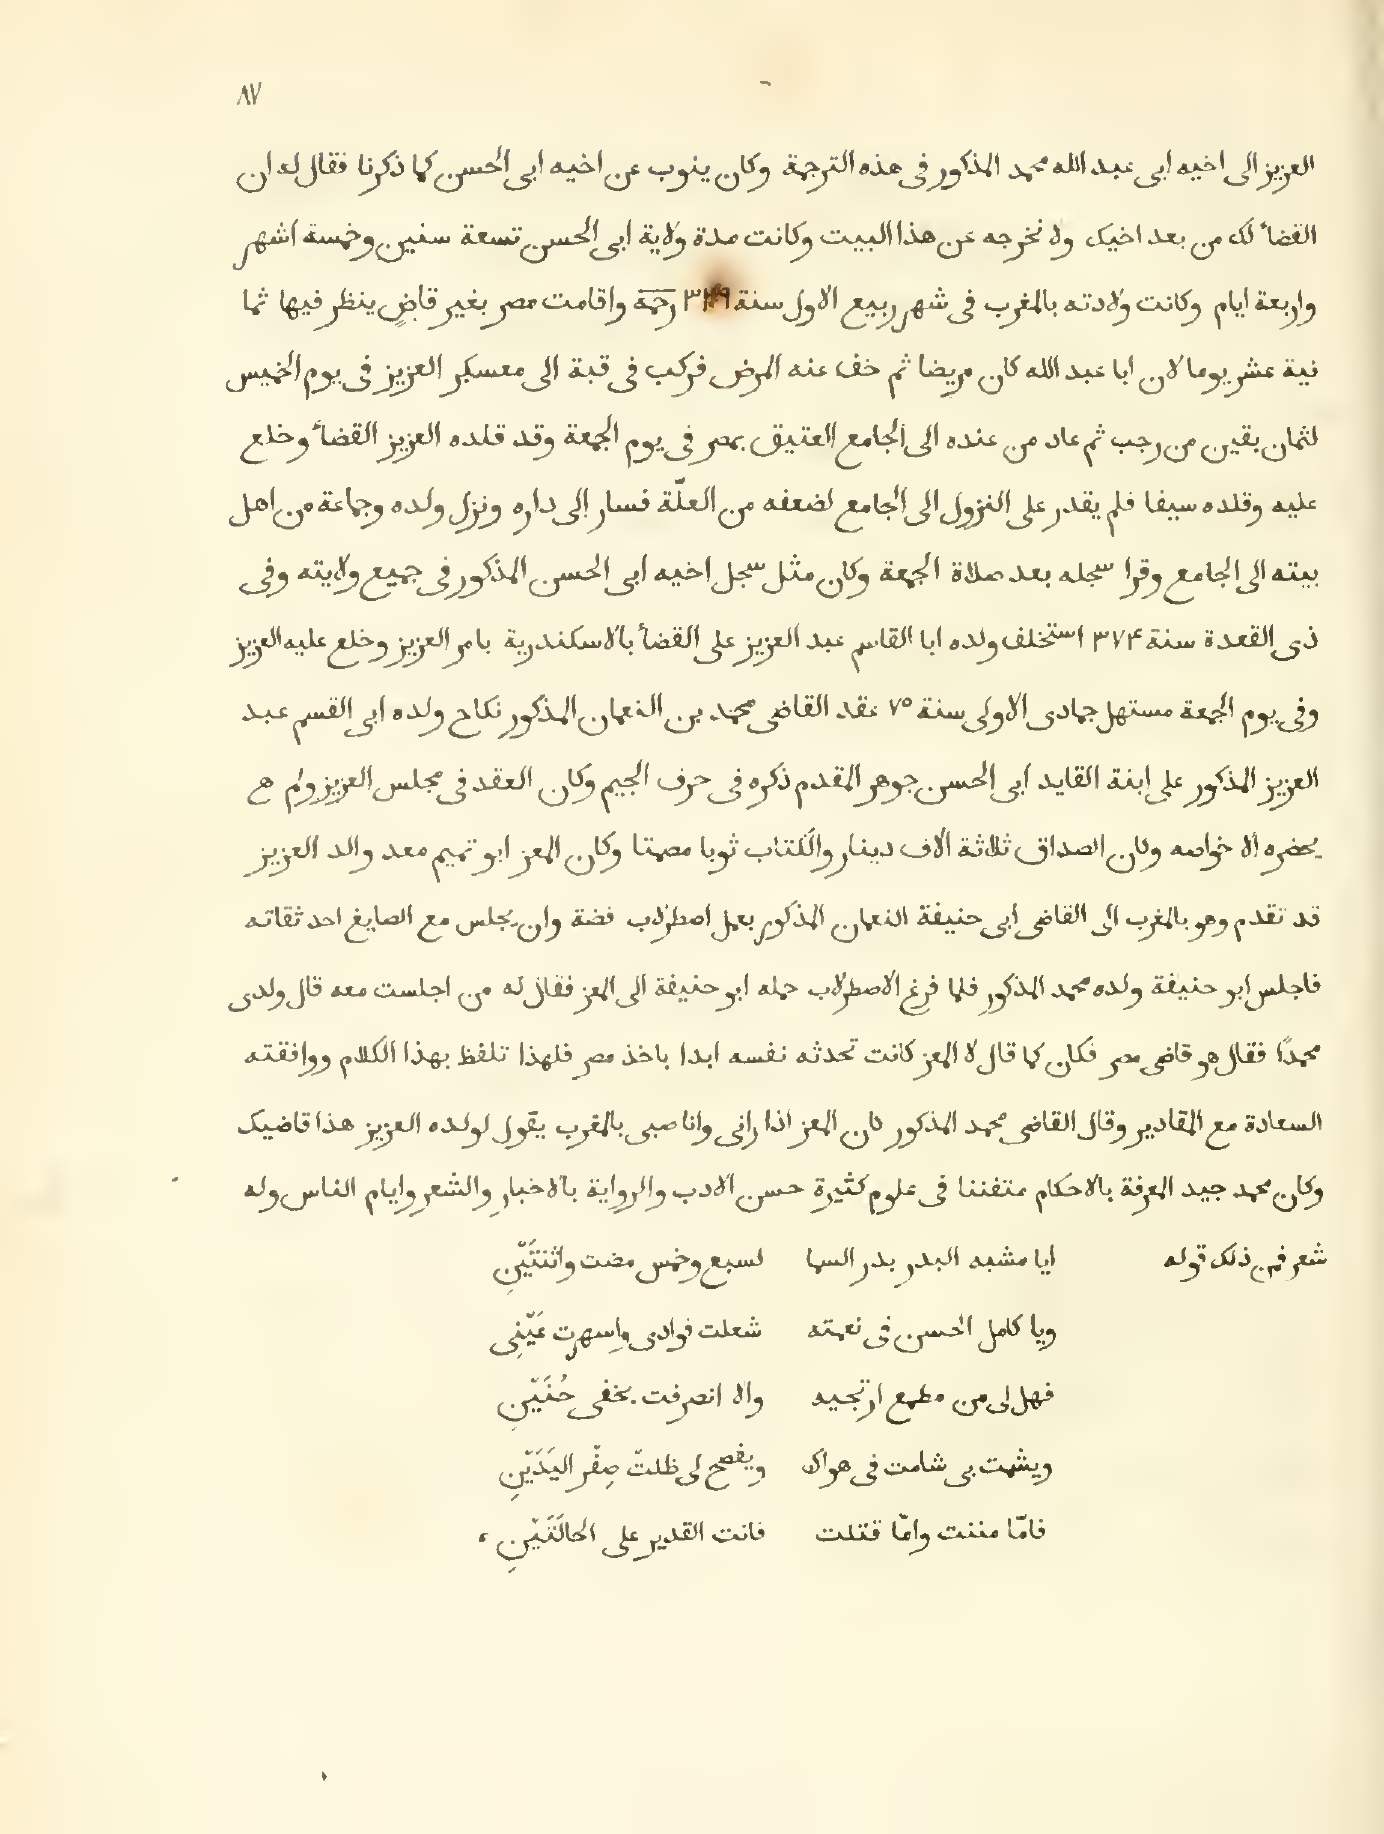 ٨٧
العزيز الى اخيه ابى عبد الله محمد المذكور فى هذه الترجمة وكان ينوب عن اخيه ابى الحسن كما ذكرنا فقال له ان
القضاء لك من بعد اخيك ولا نخرجه عن هذا البيت وكانت مدة ولاية ابى الحسن تسعة سنين وخمسة اشهر
واربعة ايام وكانت ولادته بالمغرب فى شهر ربيع الاول سنة ٣٢٩ رحمَه واقامت مصر بغير قاضٍ ينظر فيها ثما
نية عشر يوما لان ابا عبد الله كان مريضا ثم خف عنه المرض فركب فى قبة الى معسكر العزيز فى يوم الخميس
لثمان بقين من رجب ثم عاد من عنده الى الجامع العتيق بمصر فى يوم الجمعة وقد قلده العزيز القضاء وخلع
عليه وقلده سيفا فلم يقدر على النزول الى الجامع لضعفه من العلّة فسار إلى داره ونزل ولده وجماعة من اهل
بيته الى الجامع وقرا سجله بعد صلاة الجمعة وكان مثل سجل اخيه ابى الحسن المذكور فى جميع ولايته وفى
ذى القعدة سنة ٣٧۴ استخلف ولده ابا القاسم عبد العزيز على القضاء بالاسكندرية بامر العزيز وخلع عليه العزيز
وفى يوم الجمعة مستهل جمادى الاولى سنة ٧٥ عقد القاضى محمد بن النعمان المذكور نكاح ولده ابى القسم عبد
العزيز المذكور على ابنة القايد ابى الحسن جوهر المقدم ذكره فى حرف الجيم وكان العقد فى مجلس العزيز ولم ح
يحضره الا خواصه وكان الصداق ثلاثة الاف دينار والكتاب ثوبا مصمتا وكان المعز ابو تميم معد والد العزيز
قد تقدم وهو بالمغرب الى القاضى ابى حنيفة النعمان المذكور بعمل اصطرلاب فضة وان يجلس مع الصايغ احد ثقاته
فاجلس ابو حنيفة ولده محمد المذكور فلما فرغ الاصطرلاب حمله ابو حنيفة الى المعز فقال له من اجلست معه قال ولدى
محمدًا فقال هو قاضى مصر فكان كما قال لا المعز كانت تحدثه نفسه ابدا باخذ مصر فلهذا تلفظ بهذا الكلام ووافقته
السعادة مع المقادير وقال القاضى محمد المذكور كان المعز اذا رانى وانا صبى بالمغرب يقول لولده العزيز هذا قاضيك
وكان محمد جيد المعرفة بالاحكام متفننا فى علوم كثيرة حسن الادب والرواية بالاخبار والشعر وايام الناس وله
شعر فمن ذلك قوله ايا مشبه البدر بدر السما لسبع وخمس مضت واثنتَيّنِ
ويا كامل الحسن فى نعمته شعلت فوادى واسهرت عَيّنِى
فهل لى من مطمع ارتجيه والا انصرفت بخفى حُنَيّنِ
ويشمت بى شامت فى هواك ويفصح لى ظلتّ صِفّر اليَدَيّنِ
فامّا مننت وامّا قتلت فانت القدير على الحالَتَيّنِ